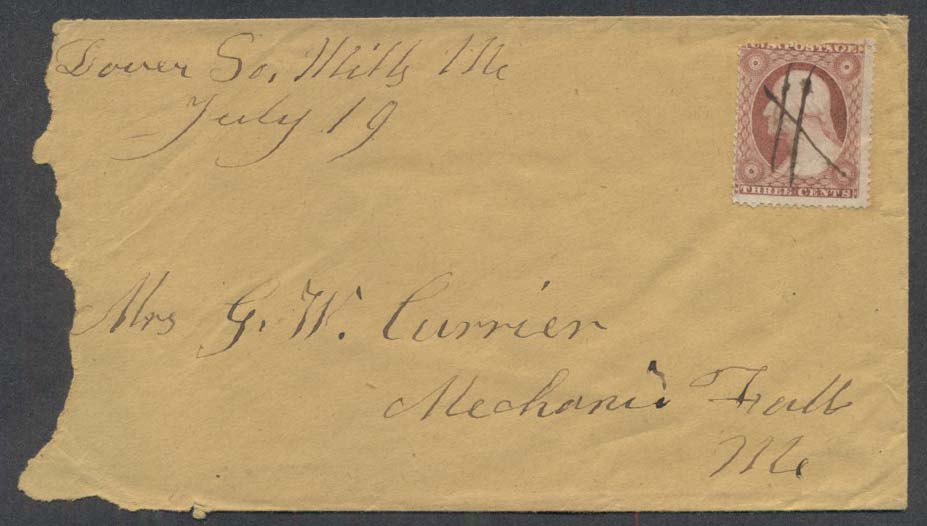 Dover So. Mills Me
July 19
U.S. POSTAGE
THREE CENTS
Mrs G. W. Currier
Mechanic Fall
Me